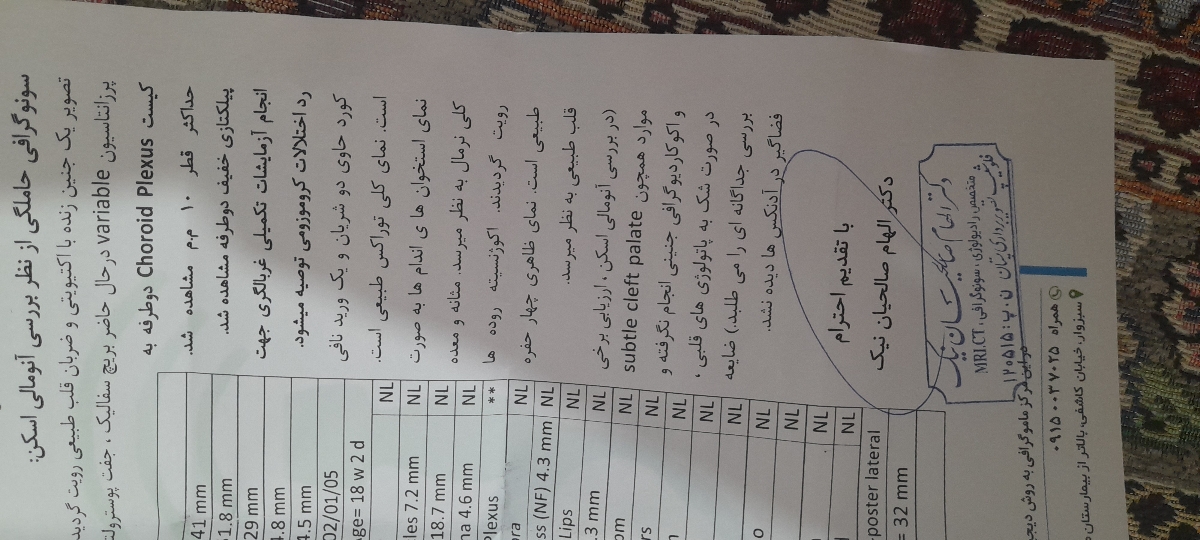 سونوگرافی حاملگی از نظر بررسی آنومالی اسکن:
تصویر یک جنین زنده با اکتیویتی و ضربان قلب طبیعی رویت گردید
پرزانتاسیون variable درحال حاضر بریچ سفالیک ، جفت پوسترولت
کیست Choroid Plexus دوطرفه به
حداکثر قطر ۱۰ م.م مشاهده شد.
پیلکتازی خفیف دوطرفه مشاهده شد.
انجام آزمایشات تکمیلی غربالگری جهت
رد اختلالات کروموزومی توصیه میشود.
کورد حاوی دو شریان و یک ورید نافی
است. نمای کلی توراکس طبیعی است.
نمای استخوان ها ی اندام ها به صورت
کلی نرمال به نظر میرسد. مثانه و معده
رویت گردیدند. اکوژنسیته روده ها
طبیعی است. نمای ظاهری چهار حفره
قلب طبیعی به نظر میرسد.
(در بررسی آنومالی اسکن ، ارزیابی برخی
موارد همچون subtle cleft palate
و اکوکاردیوگرافی جنینی انجام نگرفته و
در صورت شک به پاتولوژی های قلبی ،
بررسی جداگانه ای را می طلبد.) ضایعه
فضاگیر در آدنکس ها دیده نشد.
با تقدیم احترام
دکتر الهام صالحیان نیک
41 mm
1.8 mm
29 mm
4.8 mm
4.5 mm
02/01/05
ge= 18 w 2 d
NL
les 7.2 mm NL
18.7 mm NL
na 4.6 mm NL
Plexus **
ora NL
ss (NF) 4.3 mm NL
Lips NL
.3 mm NL
om NL
rs NL
NL
NL
NL
o NL
NL
NL
poster lateral
= 32 mm
دکتر الهام صالحیان نیک
متخصص رادیولوژی، سونوگرافی، MRI.CT
ن.پ: ۱۲۰۵۱۵
در این مرکز ماموگرافی به روش دیجی
همراه ۰۹۱۵۰۰۳۷۰۲۵
سبزوار، خیابان کاشفی، بالاتر از بیمارستان